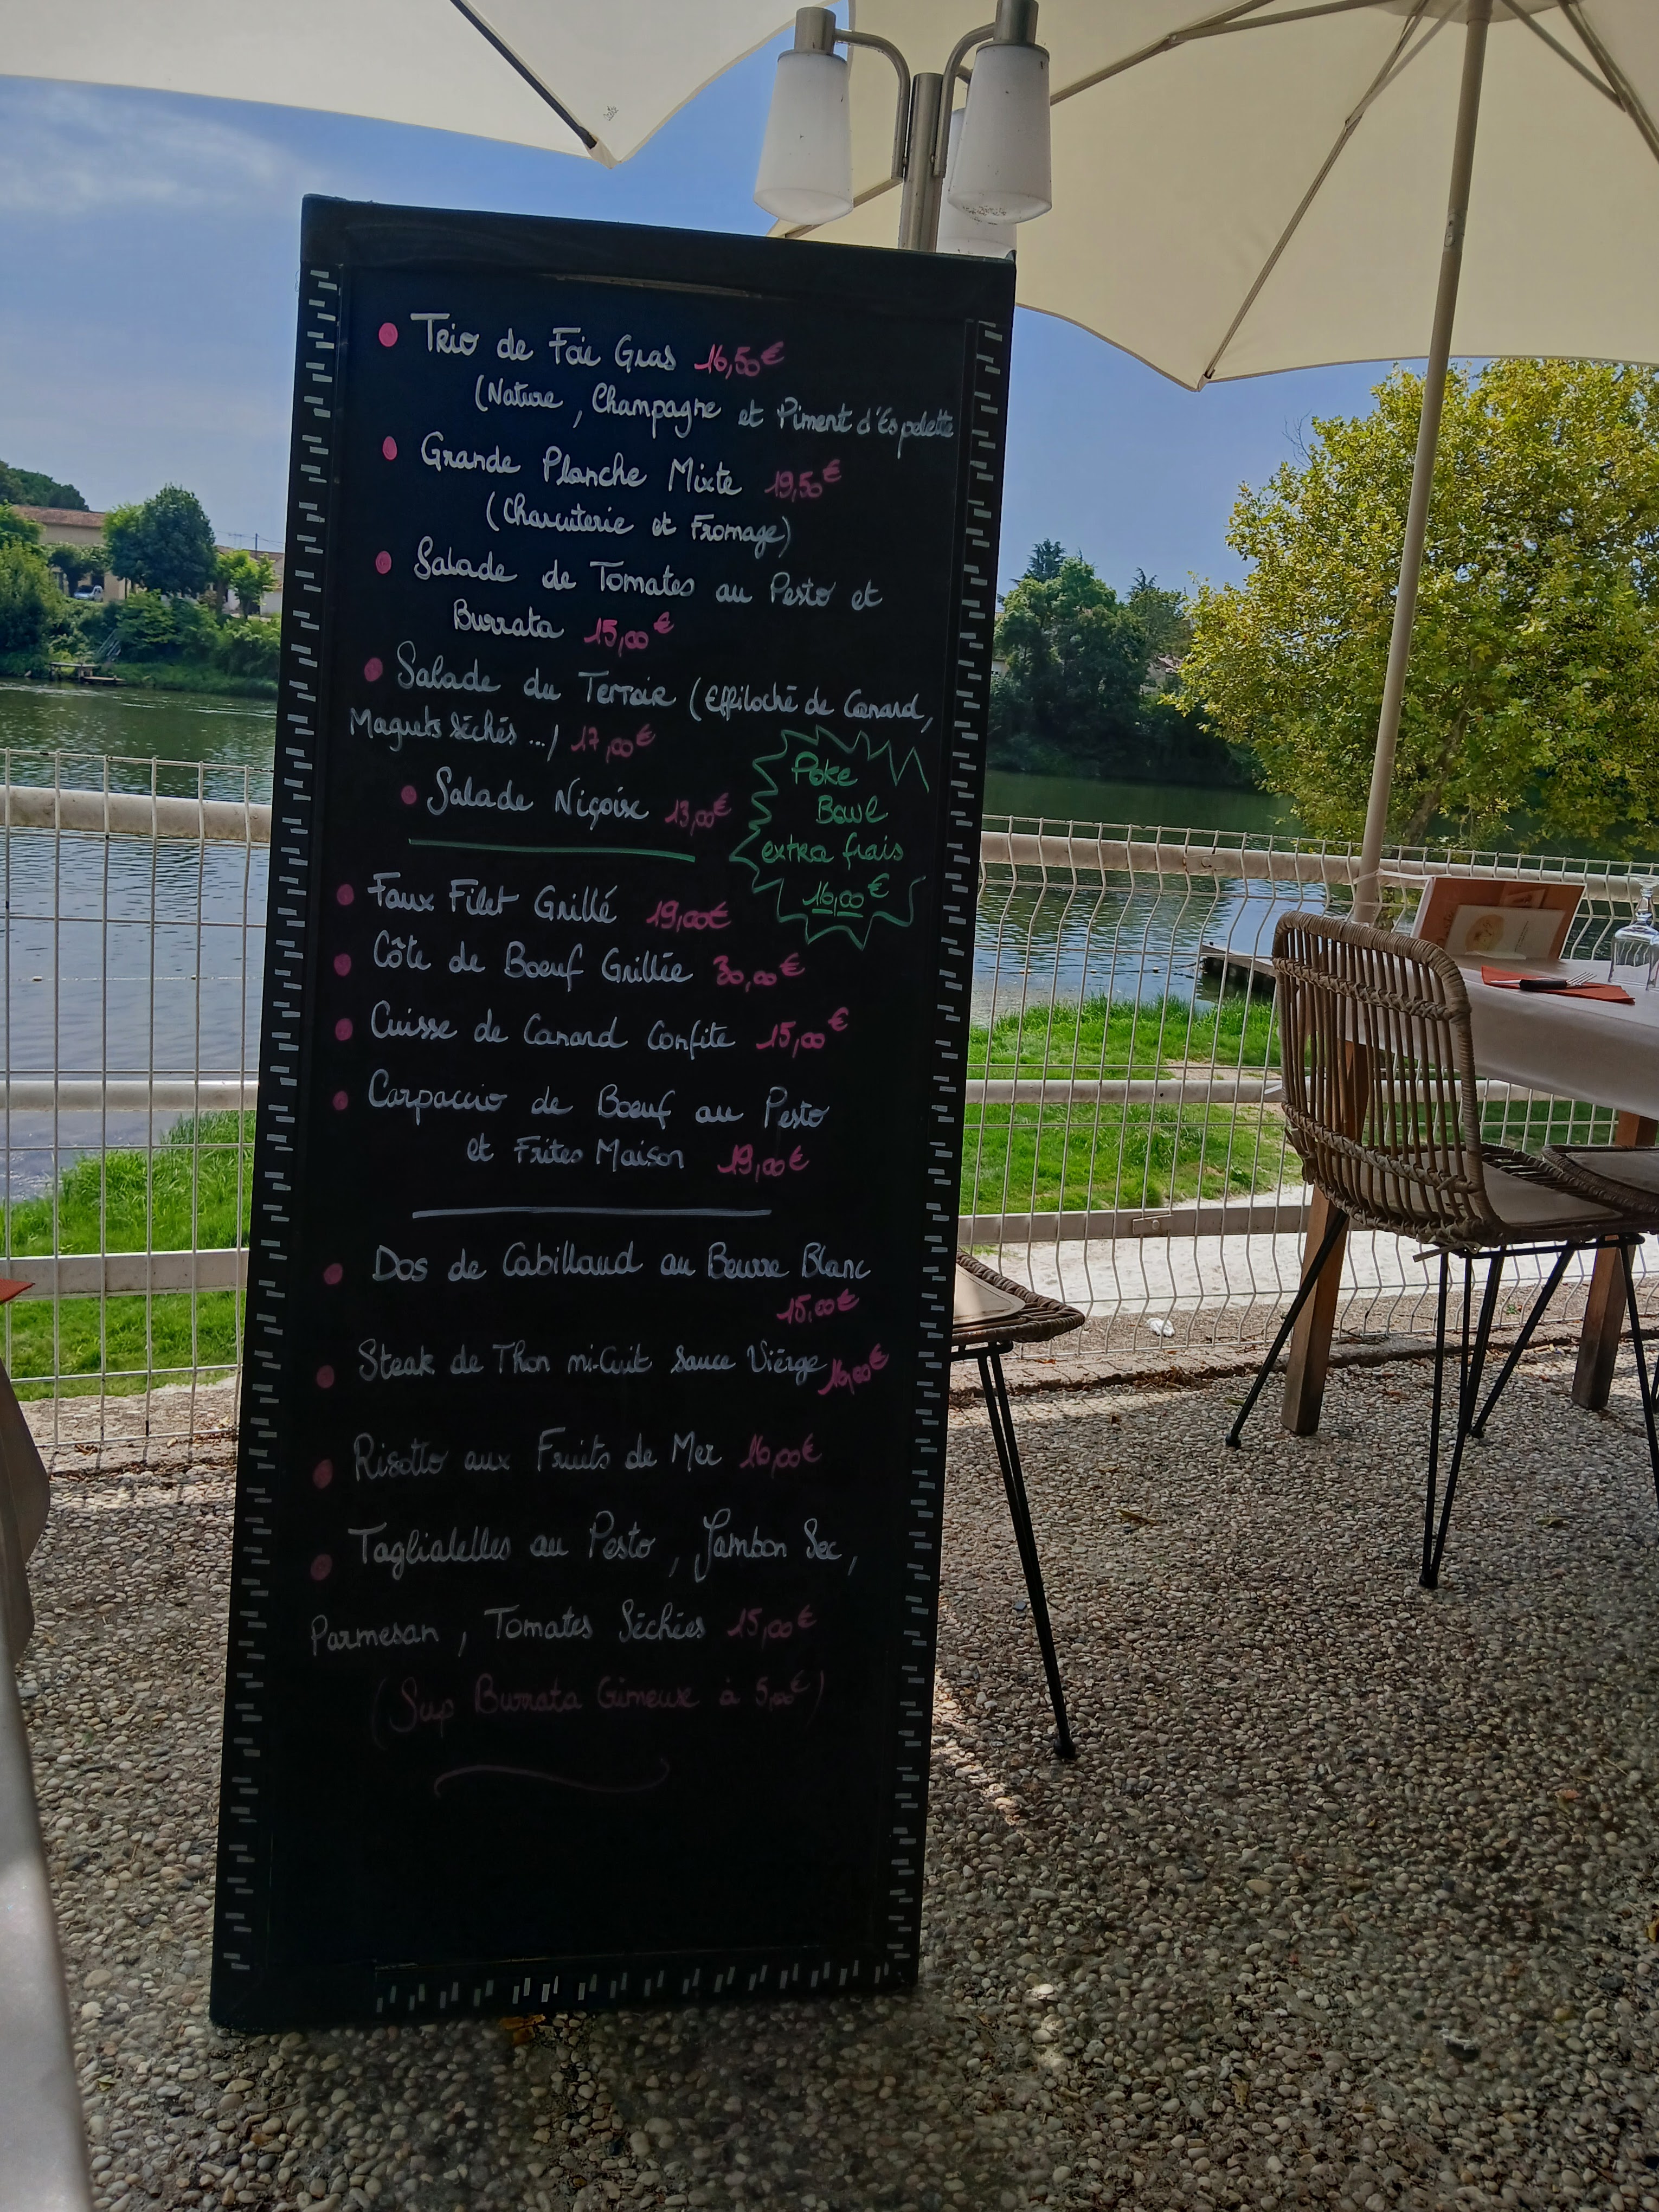 Trio de Foie Gras 16,50€
(Nature, Champagne et Piment d'Espelette
Grande Planche Mixte 19,50€
(Charcuterie et Fromage)
Salade de Tomates au Pesto et
Burrata 15,00€
Salade du Terroir (Effiloché de Canard,
Magrets séchés ...) 17,00€
Salade Niçoise 13,00€
Poke
Bowl
extra frais
16,00€
Faux Filet Grillé 19,00€
Côte de Boeuf Grillée 30,00€
Cuisse de Canard Confite 15,00€
Carpaccio de Boeuf au Pesto
et Frites Maison 19,00€
Dos de Cabillaud au Beurre Blanc
15,00€
Steak de Thon mi-Cuit Sauce Viérge 16,00€
Risotto aux Fruits de Mer 16,00€
Tagliatelles au Pesto, Jambon Sec,
Parmesan, Tomates Séchées 15,00€
(Sup Burrata Gimeux à 5,00€)